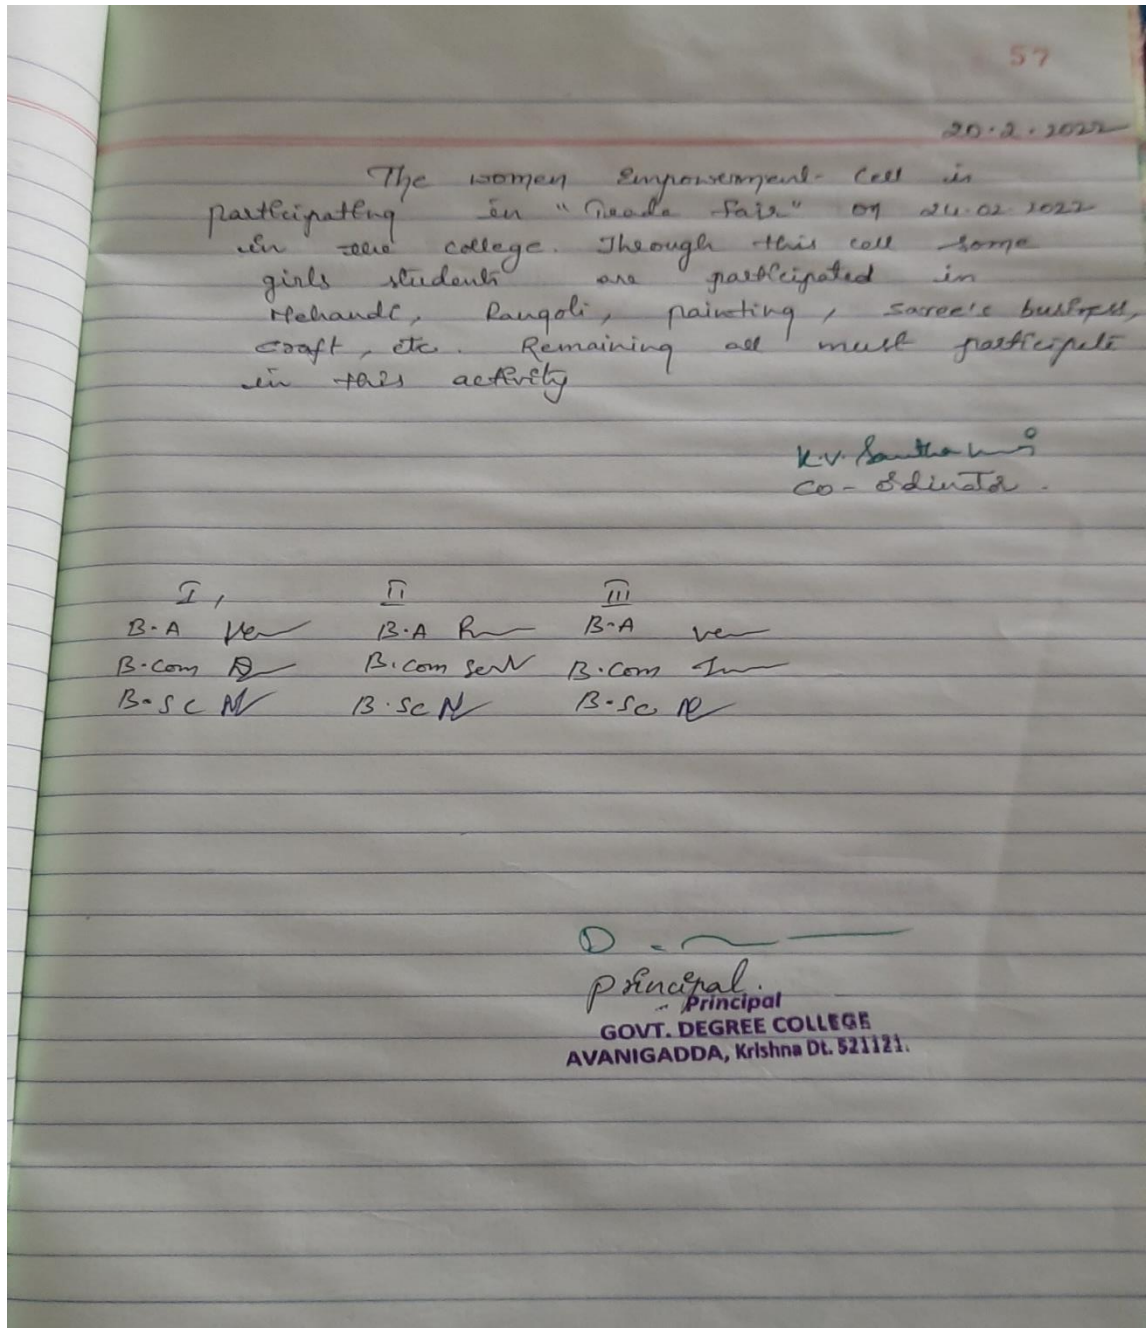 57
20.2.2022
The women Empowerment Cell is
participating in "Trade Fair" on 24.02.2022
in college. Through this cell some
girls students are participated in
Mehandi, Rangoli, painting, saree's business,
craft, etc. Remaining all must participate
in this activity
K.V.
Co-ordinator.
I, II III
B.A B.A B.A
B.com B.com B.com
B.Sc B.Sc B.Sc
Principal.
Principal
GOVT. DEGREE COLLEGE
AVANIGADDA, Krishna Dt. 521121.